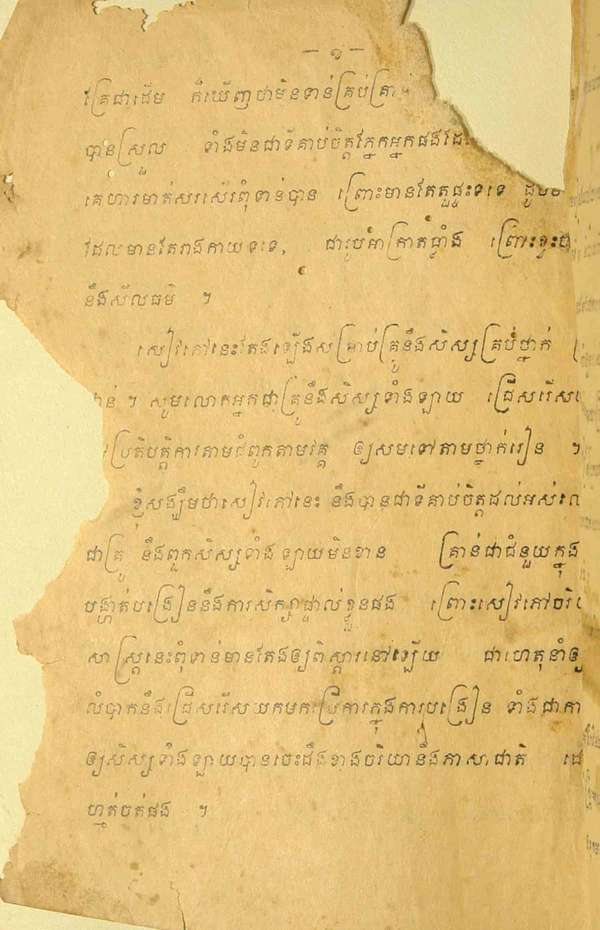 — ១ —
គ្រែជាដើម ក៏ឃើញថាមិនទាន់គ្រប់គ្រា
បានស្រួល ទាំងមិនជាទីគាប់ចិត្តភ្នែកអ្នកផងដែ
គេហារមាត់សរសើរពុំទាន់បាន ព្រោះមានតែតួផ្ទះទទេ ដូច
ដែលមានតែរាងកាយទទេ, ជារូបអាក្រាតធ្លាំង ព្រោះខ្វះ
នឹងសីលធម៌ ។
សៀវភៅនេះតែងឡើងសម្រាប់គ្រូនឹងសិស្សគ្រប់ថ្នាក់
។ សូមលោកអ្នកជាគ្រូនឹងសិស្សទាំងឡាយ ជ្រើសរើស
ប្រតិបត្តិការតាមជំពូកតាមវគ្គ ឲ្យសមទៅតាមថ្នាក់រៀន ។
ខ្ញុំសង្ឃឹមថាសៀវភៅនេះ នឹងបានជាទីគាប់ចិត្តដល់អស់លោ
ជាគ្រូ នឹងពួកសិស្សទាំងឡាយមិនខាន គ្រាន់ជាជំនួយក្នុង
បង្ហាត់បង្រៀននឹងការសិក្សាផ្ទាល់ខ្លួនផង ព្រោះសៀវភៅចរិយ
សាស្ត្រនេះពុំទាន់មានតែងឲ្យពិស្តារនៅឡើយ ជាហេតុនាំឲ្យ
លំបាកនឹងជ្រើសរើសយកមកប្រើការក្នុងការបង្រៀន ទាំងជាកា
ឲ្យសិស្សទាំងឡាយបានចេះដឹងខាងចរិយានឹងភាសាជាតិ ដោ
ហ្មត់ចត់ផង ។